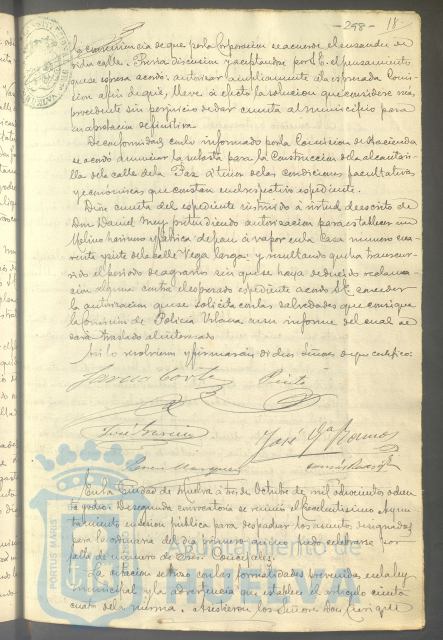 -298- 18
la conveniencia de que por la Corporacion se acuerde el ensanche de
dicha calle. Previa discusion y aceptandose por S.E. el pensamiento
que se espresa acordó: autorizar ampliamente a la espresada Comi-
sion a fin de que, lleve á efecto la solucion que considere mas
procedente sin perjuicio de dar cuenta al municipio para
su aprobacion definitiva.
De conformidad con lo informado por la Comision de Hacienda
se acordó anunciar la subasta para la Construccion de la alcanta-
rilla de la calle de la Paz á tenor de las condiciones facultativas
y economicas que constan en el respectivo espediente.
Dióse cuenta del espediente instruido á virtud de escrito de
Don Daniel Muy pretendiendo autorizacion para establecer un
Molino harinero y fábrica de pan á vapor en la Casa numero cua-
renta y siete de la calle Vega larga: y resultando que ha transcur-
rido el periodo de agravios sin que se haya deducido reclama-
cion alguna contra el espresado espediente acordó S.E. conceder
la autorizacion que se solicita con las salvedades que consigna
la Comision de Policia Urbana en su informe del cual se
dará traslado al interesado.
Asi lo resolvieron y firmarán dichos Señores de que certifico:
Garcia Cortés Pinto
José Garcia José Gª Ramos
Marquez
En la Ciudad de Huelva á tres de Octubre de mil ochocientos ochen-
ta y ocho: De segunda convocatoria se reunió el Excelentisimo Ayun-
tamiento en sesion pública para despachar los asuntos designados
para la ordinaria del dia primero que no pudo celebrarse por
falta de numero de Sres. Concejales.
La citacion se hizo con las formalidades prevenidas en la ley
municipal y la advertencia que establece el artículo ciento
cuatro de la misma. Asistieron los Señores Don Enrique
PORTUS MARIS
Ayuntamiento de
HUELVA